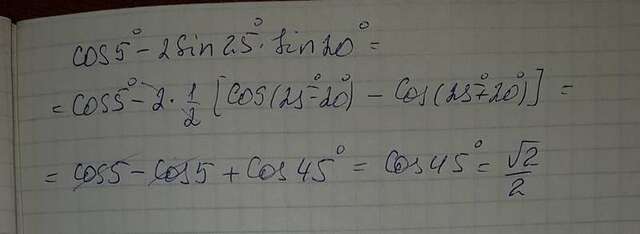 cos5° - 2sin25° · sin20° =
= cos5° - 2 · 1/2 [cos(25° - 20°) - cos(25° + 20°)] =
= cos5 - cos5 + cos45° = cos45° = √2/2